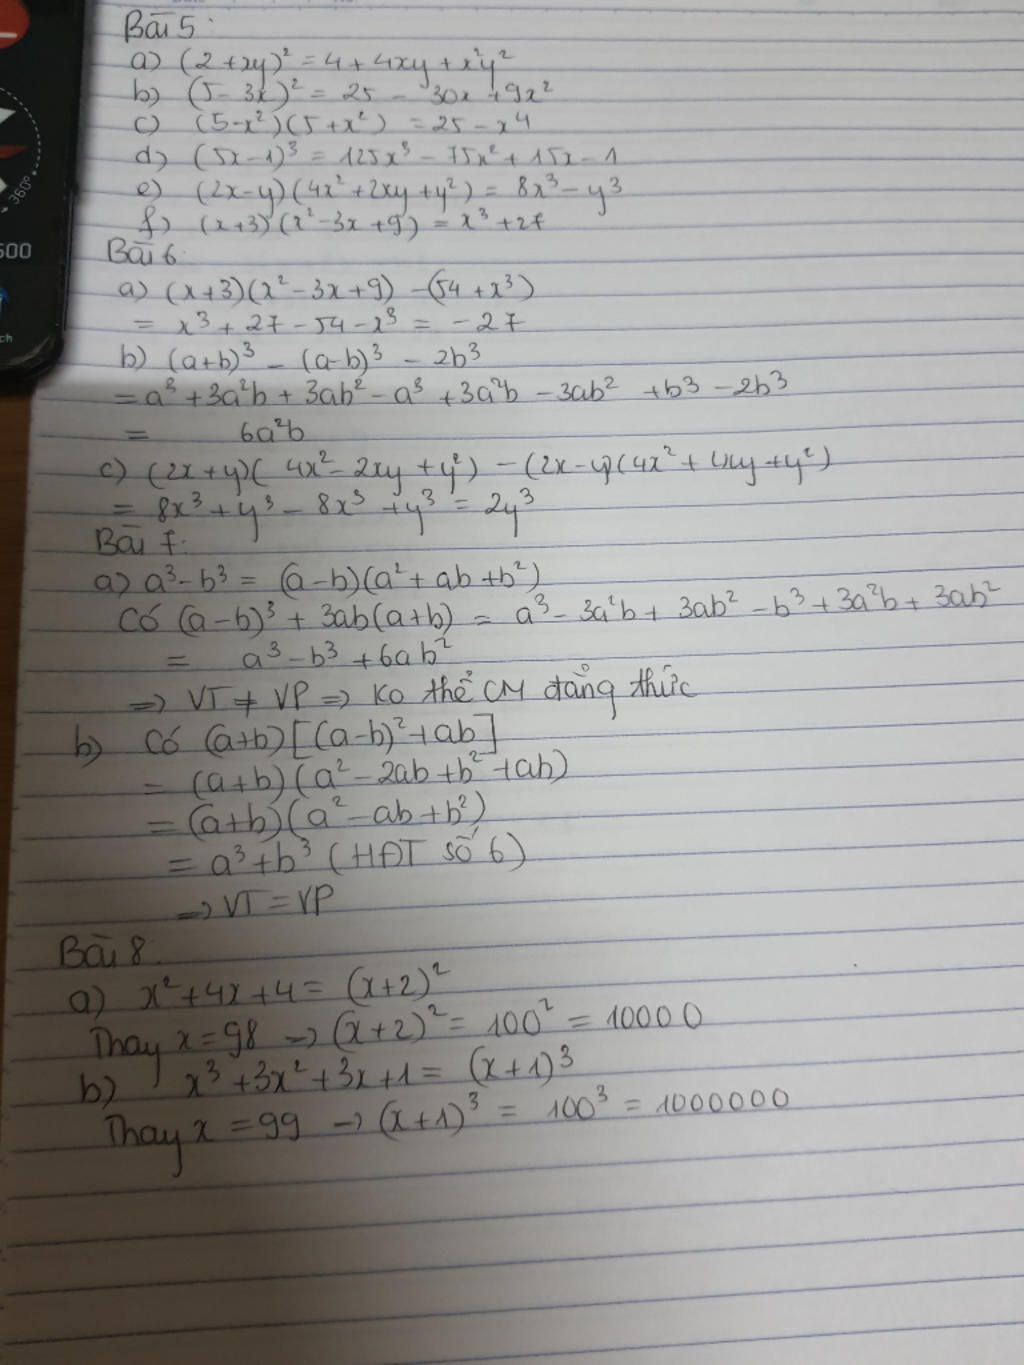 Bài 5:
a) (2+xy)² = 4 + 4xy + x²y²
b) (5 - 3x)² = 25 - 30x + 9x²
c) (5-x²)(5+x²) = 25 - x⁴
d) (5x-1)³ = 125x³ - 75x² + 15x - 1
e) (2x-y)(4x²+2xy+y²) = 8x³ - y³
f) (x+3)(x²-3x+9) = x³ + 27
Bài 6:
a) (x+3)(x²-3x+9) - (54+x³)
= x³ + 27 - 54 - x³ = -27
b) (a+b)³ - (a-b)³ - 2b³
= a³ + 3a²b + 3ab² - a³ + 3a²b - 3ab² + b³ - 2b³
= 6a²b
c) (2x+y)(4x²-2xy+y²) - (2x-y)(4x²+4xy+y²)
= 8x³ + y³ - 8x³ + y³ = 2y³
Bài 7:
a) a³-b³ = (a-b)(a²+ab+b²)
Có (a-b)³ + 3ab(a+b) = a³ - 3a²b + 3ab² - b³ + 3a²b + 3ab²
= a³ - b³ + 6ab²
=> VT ≠ VP => Ko thể CM đẳng thức
b) Có (a+b)[(a-b)²+ab]
= (a+b)(a²-2ab+b²+ab)
= (a+b)(a²-ab+b²)
= a³+b³ (HĐT số 6)
=> VT = VP
Bài 8:
a) x²+4x+4 = (x+2)²
Thay x = 98 → (x+2)² = 100² = 10000
b) x³+3x²+3x+1 = (x+1)³
Thay x = 99 → (x+1)³ = 100³ = 1000000
360°
500
ch